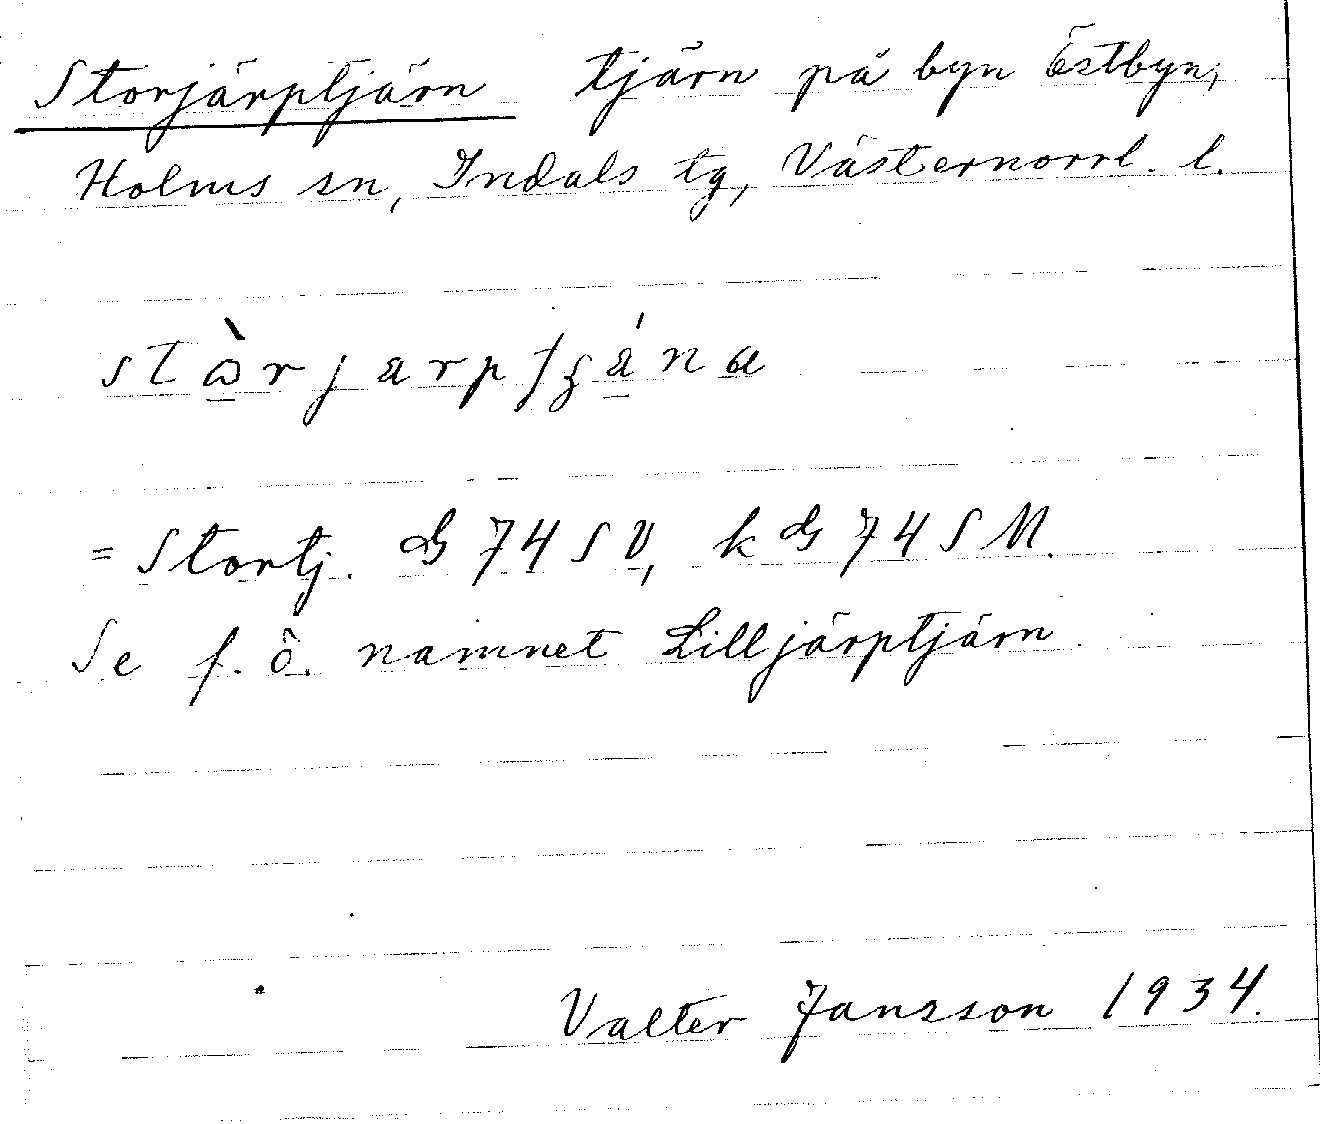 Storjärptjärn tjärn på byn Östbyn,
Holms sn, Indals tg, Västernorrl. l.
= Stortj. G 74 SV, k G 74 SM.
Se f. ö. namnet Lilljärptjärn.
Valter Jansson 1934.